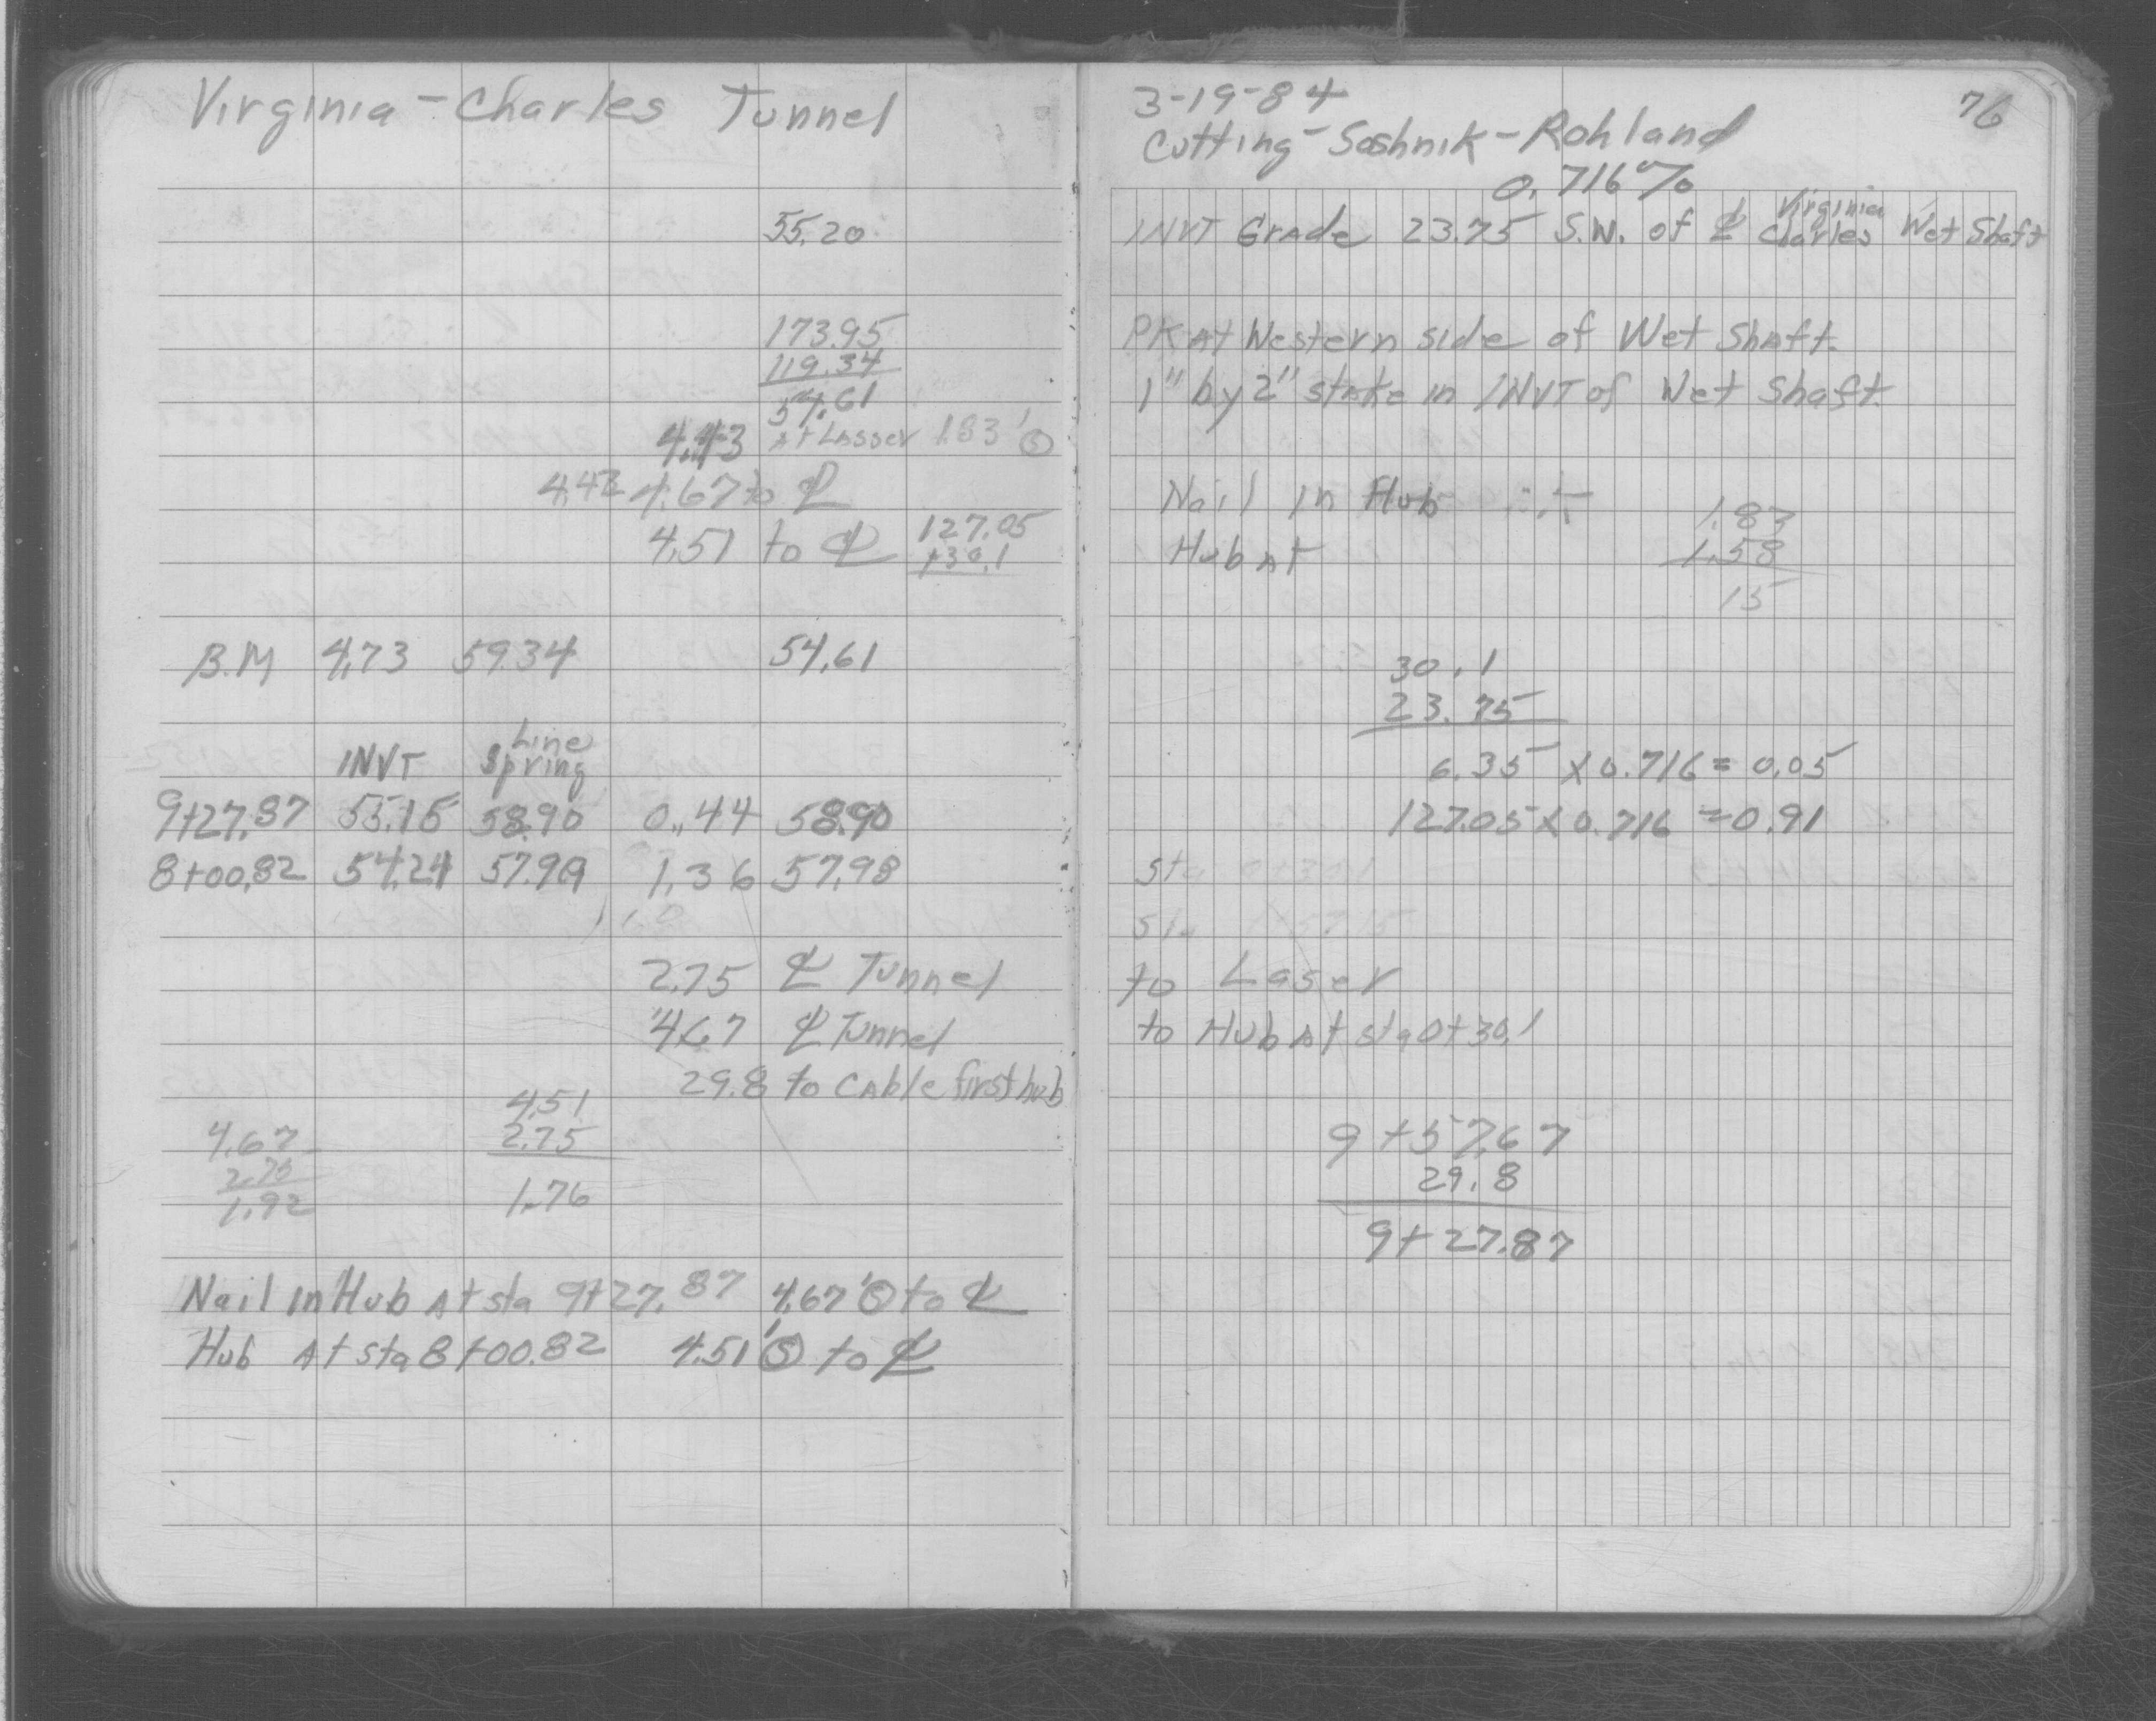 Virginia - Charles Tunnel
55.20
173.95
119.34
54.61
4.43 At Lasser 1.83' Ⓢ
4.43 4.67 to ℄
4.51 to ℄ 127.05
+30.1
B.M 4.73 59.34 54.61
INVT Spring Line
9+27.87 55.15 58.90 0.44 58.90
8+00.82 54.24 57.99 1.36 57.98
2.75 ℄ Tunnel
4.67 ℄ Tunnel
29.8 to CAble first hub
4.67
2.75
1.92
4.51
2.75
1.76
Nail in Hub At sta 9+27.87 4.67' Ⓢ to ℄
Hub At sta 8+00.82 4.51' Ⓢ to ℄
3-19-84
76
Cutting - Soshnik - Rohland
0.716%
INVT GrAde 23.75 S.W. of ℄ Virginia Charles Wet Shaft
PK At Western side of Wet ShAft.
1" by 2" stAke in INVT of Wet Shaft.
Nail in Hub
Hub At
1.83
1.58
15
30.1
23.75
6.35 X 0.716 = 0.05
127.05 X 0.716 = 0.91
Sta
Sta
to Laser
to Hub At sta 0+30.1
9+57.67
29.8
9+27.87